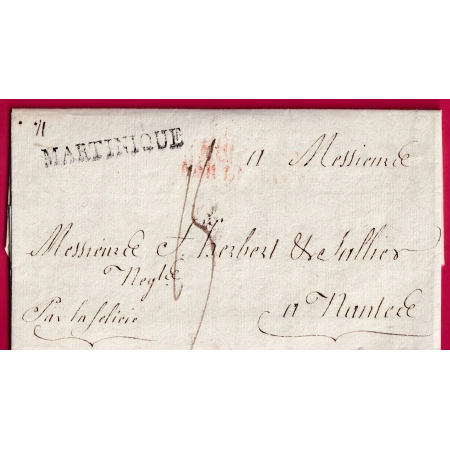 MARTINIQUE
a Messieurs
Messieurs J. Herbert & Jullien
Negts
Par la felicie a Nantes